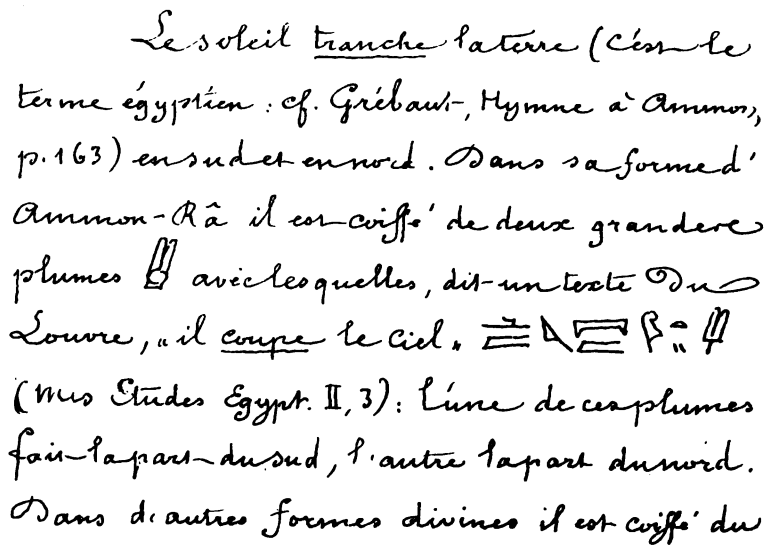 Le soleil tranche la terre (c'est le
terme égyptien : cf. Grébaut, Hymne à Ammon,
p. 163) en sud et en nord. Dans sa forme d'
Ammon-Râ il est coiffé de deux grandes
plumes avec lesquelles, dit un texte du
Louvre, « il coupe le ciel »
(Mes Etudes Egypt. II, 3) : l'une de ces plumes
fait la part du sud, l'autre la part du nord.
Dans d'autres formes divines il est coiffé du